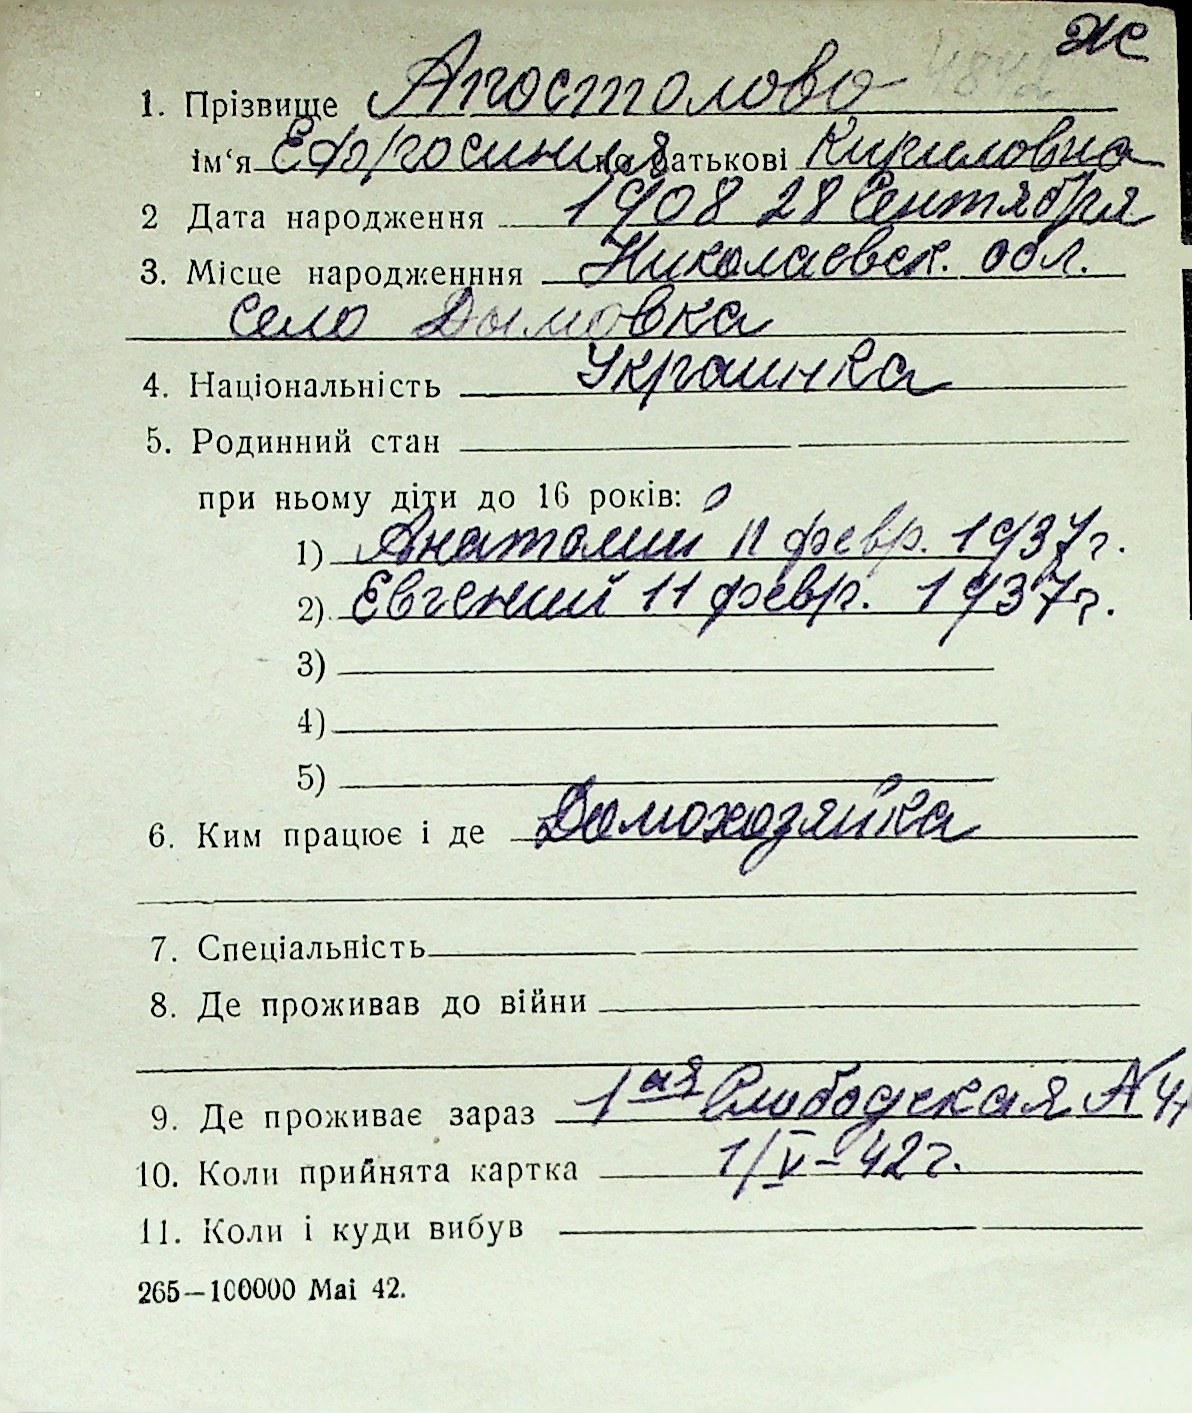 Ж
4842
1. Прізвище Апостолово
ім‘я Ефросиния по батькові Кириловна
2 Дата народження 1908 28 Сентября
3. Місце народженння Николаевск. обл.
село Дымовка
4. Національність Украинка
5. Родинний стан
при ньому діти до 16 років:
1) Анатолий 11 февр. 1937г.
2) Евгений 11 февр. 1937г.
3)
4)
5)
6. Ким працює і де Домохозяйка
7. Спеціальність
8. Де проживав до війни
9. Де проживає зараз 1ая Слободская №
10. Коли прийнята картка 1/V-42г.
11. Коли і куди вибув
265—100000 Маі 42.